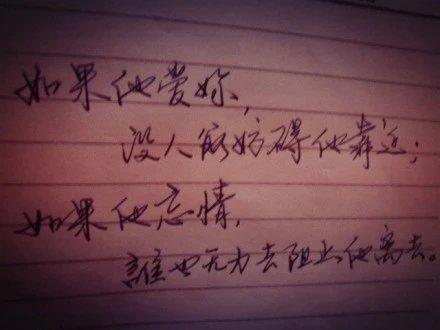 如果他爱妳，
没人能妨碍他靠近；
如果他忘情，
誰也无力去阻止他离去。